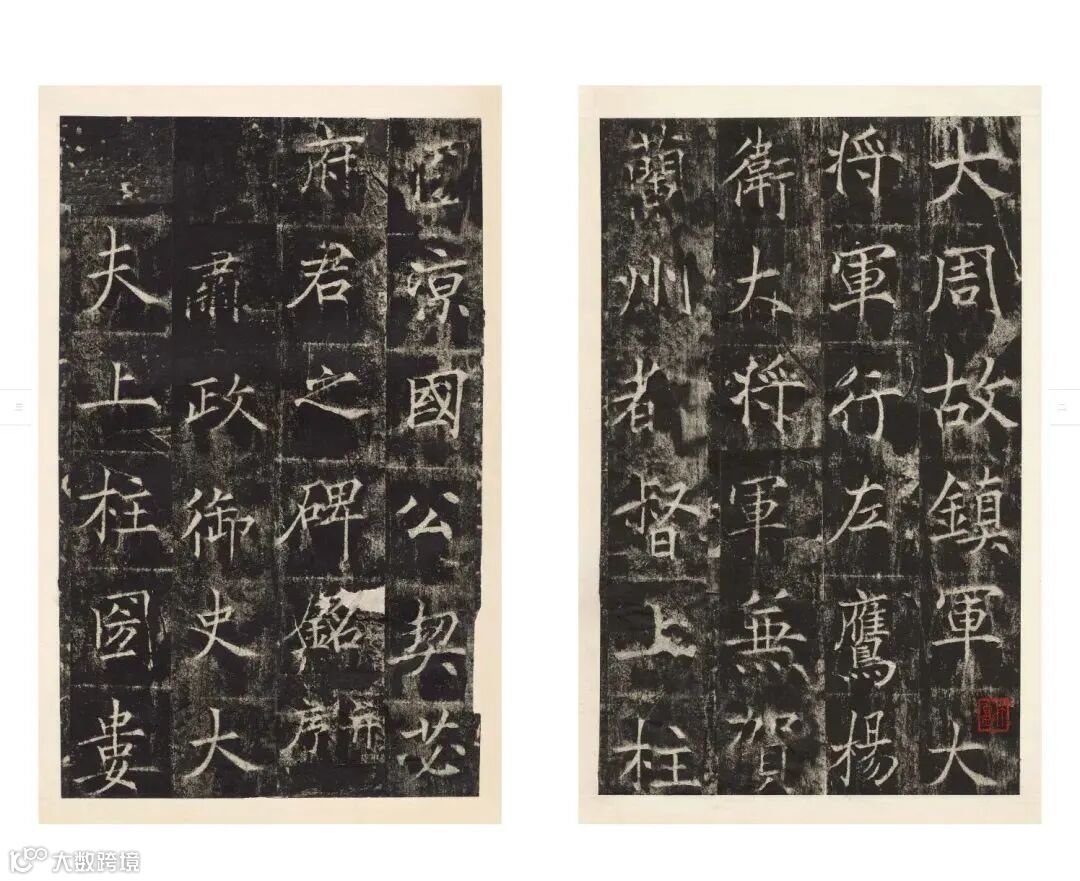 大周故鎮軍大
将軍行左鷹楊
衛大将軍兼賀
蘭州都督上柱
凉國公契苾
府君之碑銘并序
肅政御史大
夫上柱圀婁
二
三
大数跨境